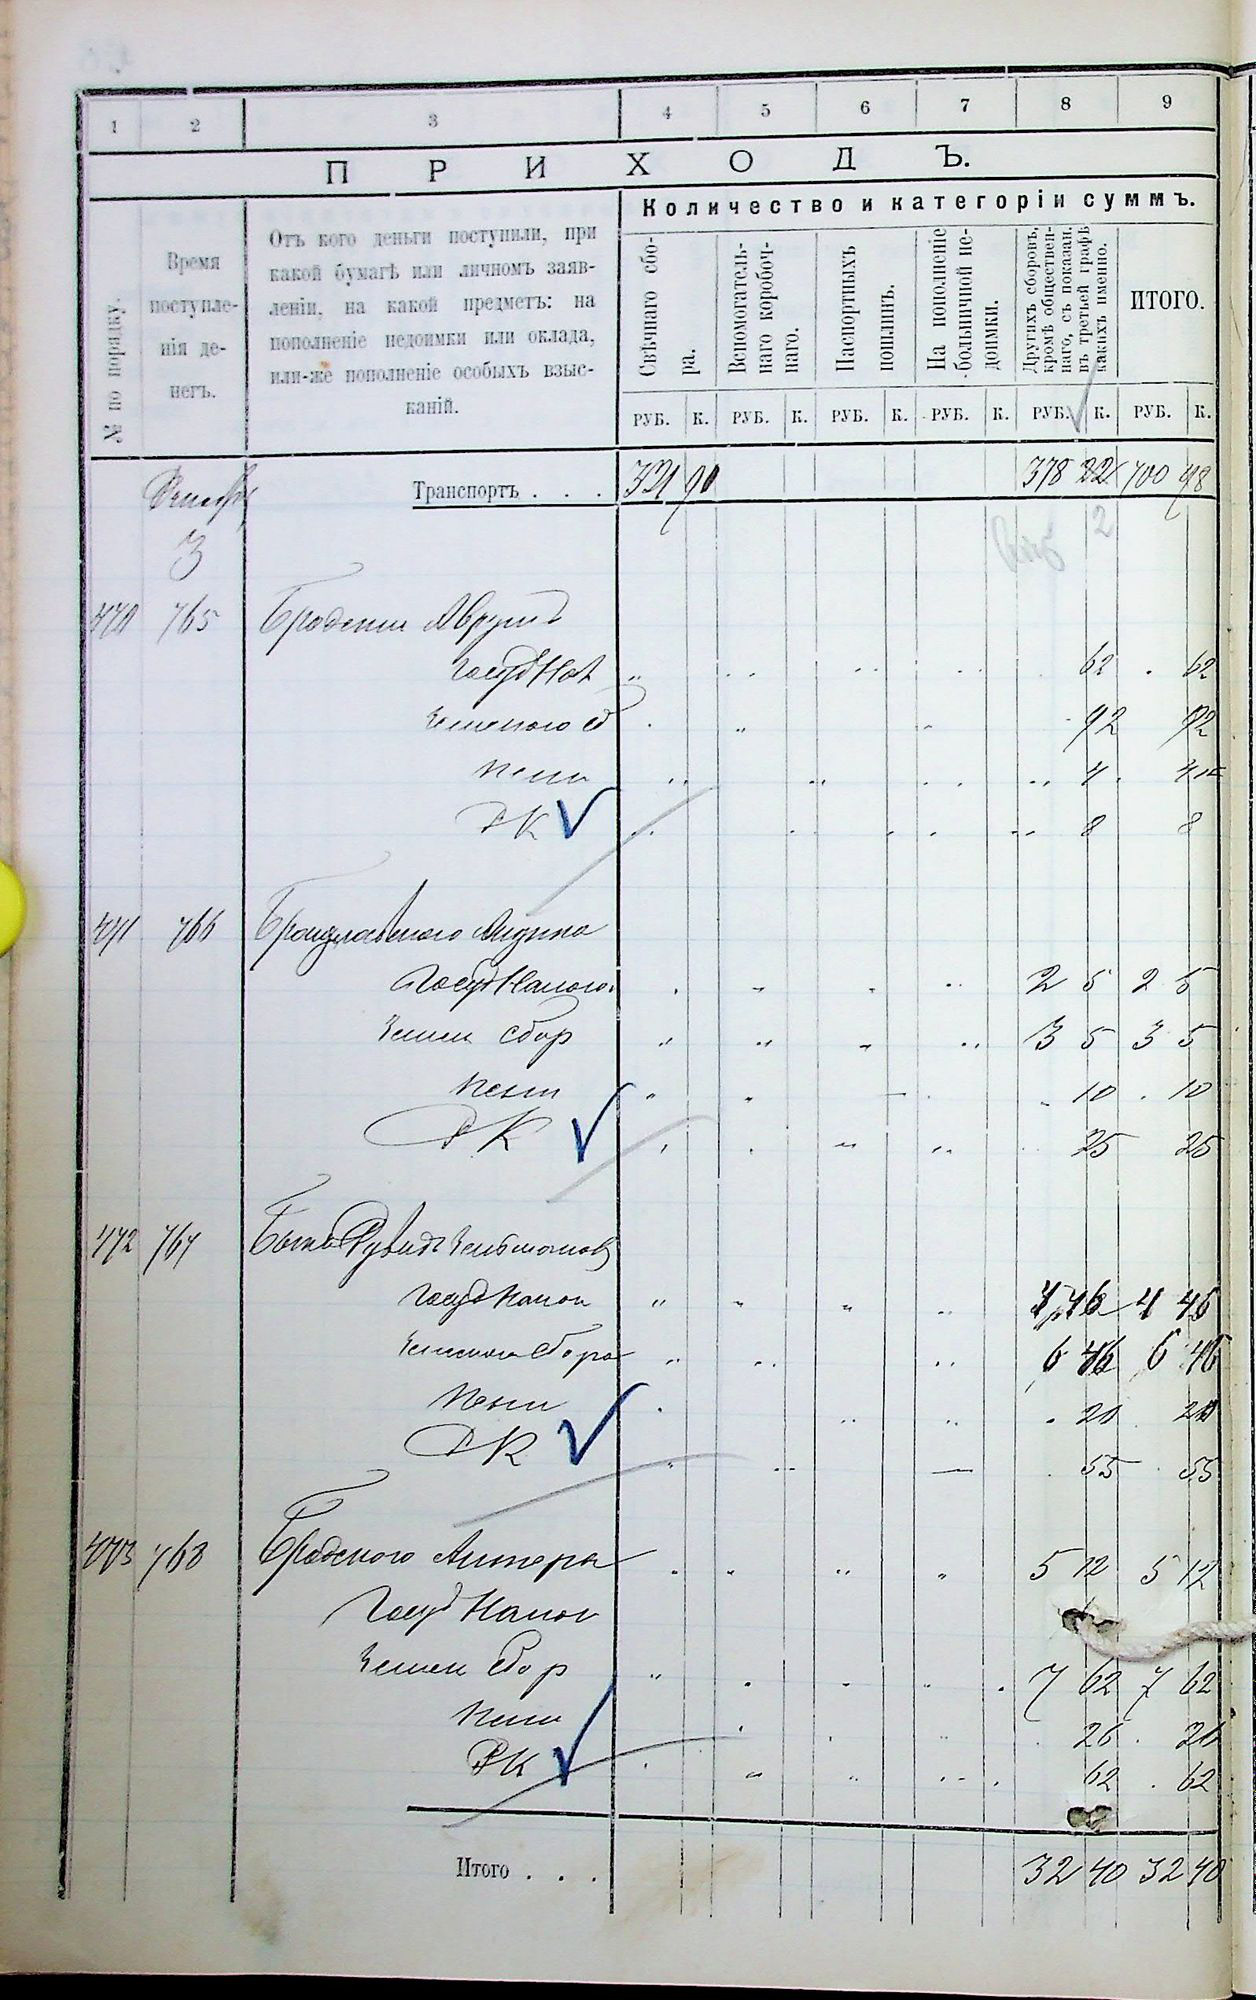 1 2 3 4 5 6 7 8 9
ПРИХОДЪ.
№ по порядку.
Время
поступле-
нія де-
негъ.
Отъ кого деньги поступили, при
какой бумагѣ или личномъ заяв-
леніи, на какой предметъ: на
пополненіе недоимки или оклада,
или-же пополненіе особыхъ взыс-
каній.
Количество и категоріи суммъ.
Свѣчнаго сбо-
ра.
Вспомогатель-
наго коробоч-
наго.
Паспортныхъ
пошлинъ.
На пополненіе
больничной не-
доимки.
Другихъ сборовъ,
кромѣ обществен-
наго, съ показан.
въ третьей графѣ
какихъ именно.
ИТОГО.
РУБ. К. РУБ. К. РУБ. К. РУБ. К. РУБ. К. РУБ. К.
Транспортъ . . . 321 90 378 22 700 98
3
470 765
62 62
92 92
Пени 4 4
РК 8 8
471 766
2 5 2 5
Земск сбор 3 5 3 5
Пени 10 10
РК 25 25
472 767
Госуд Налог 4 46 4 46
Земского сбора 6 46 6 46
Пени 20 20
РК 55 55
473 768 Бродского 5 12 5 12
Госуд Налог
Земск сбор 7 62 7 62
Пени 26 26
РК 62 62
Итого . . . 32 40 32 40